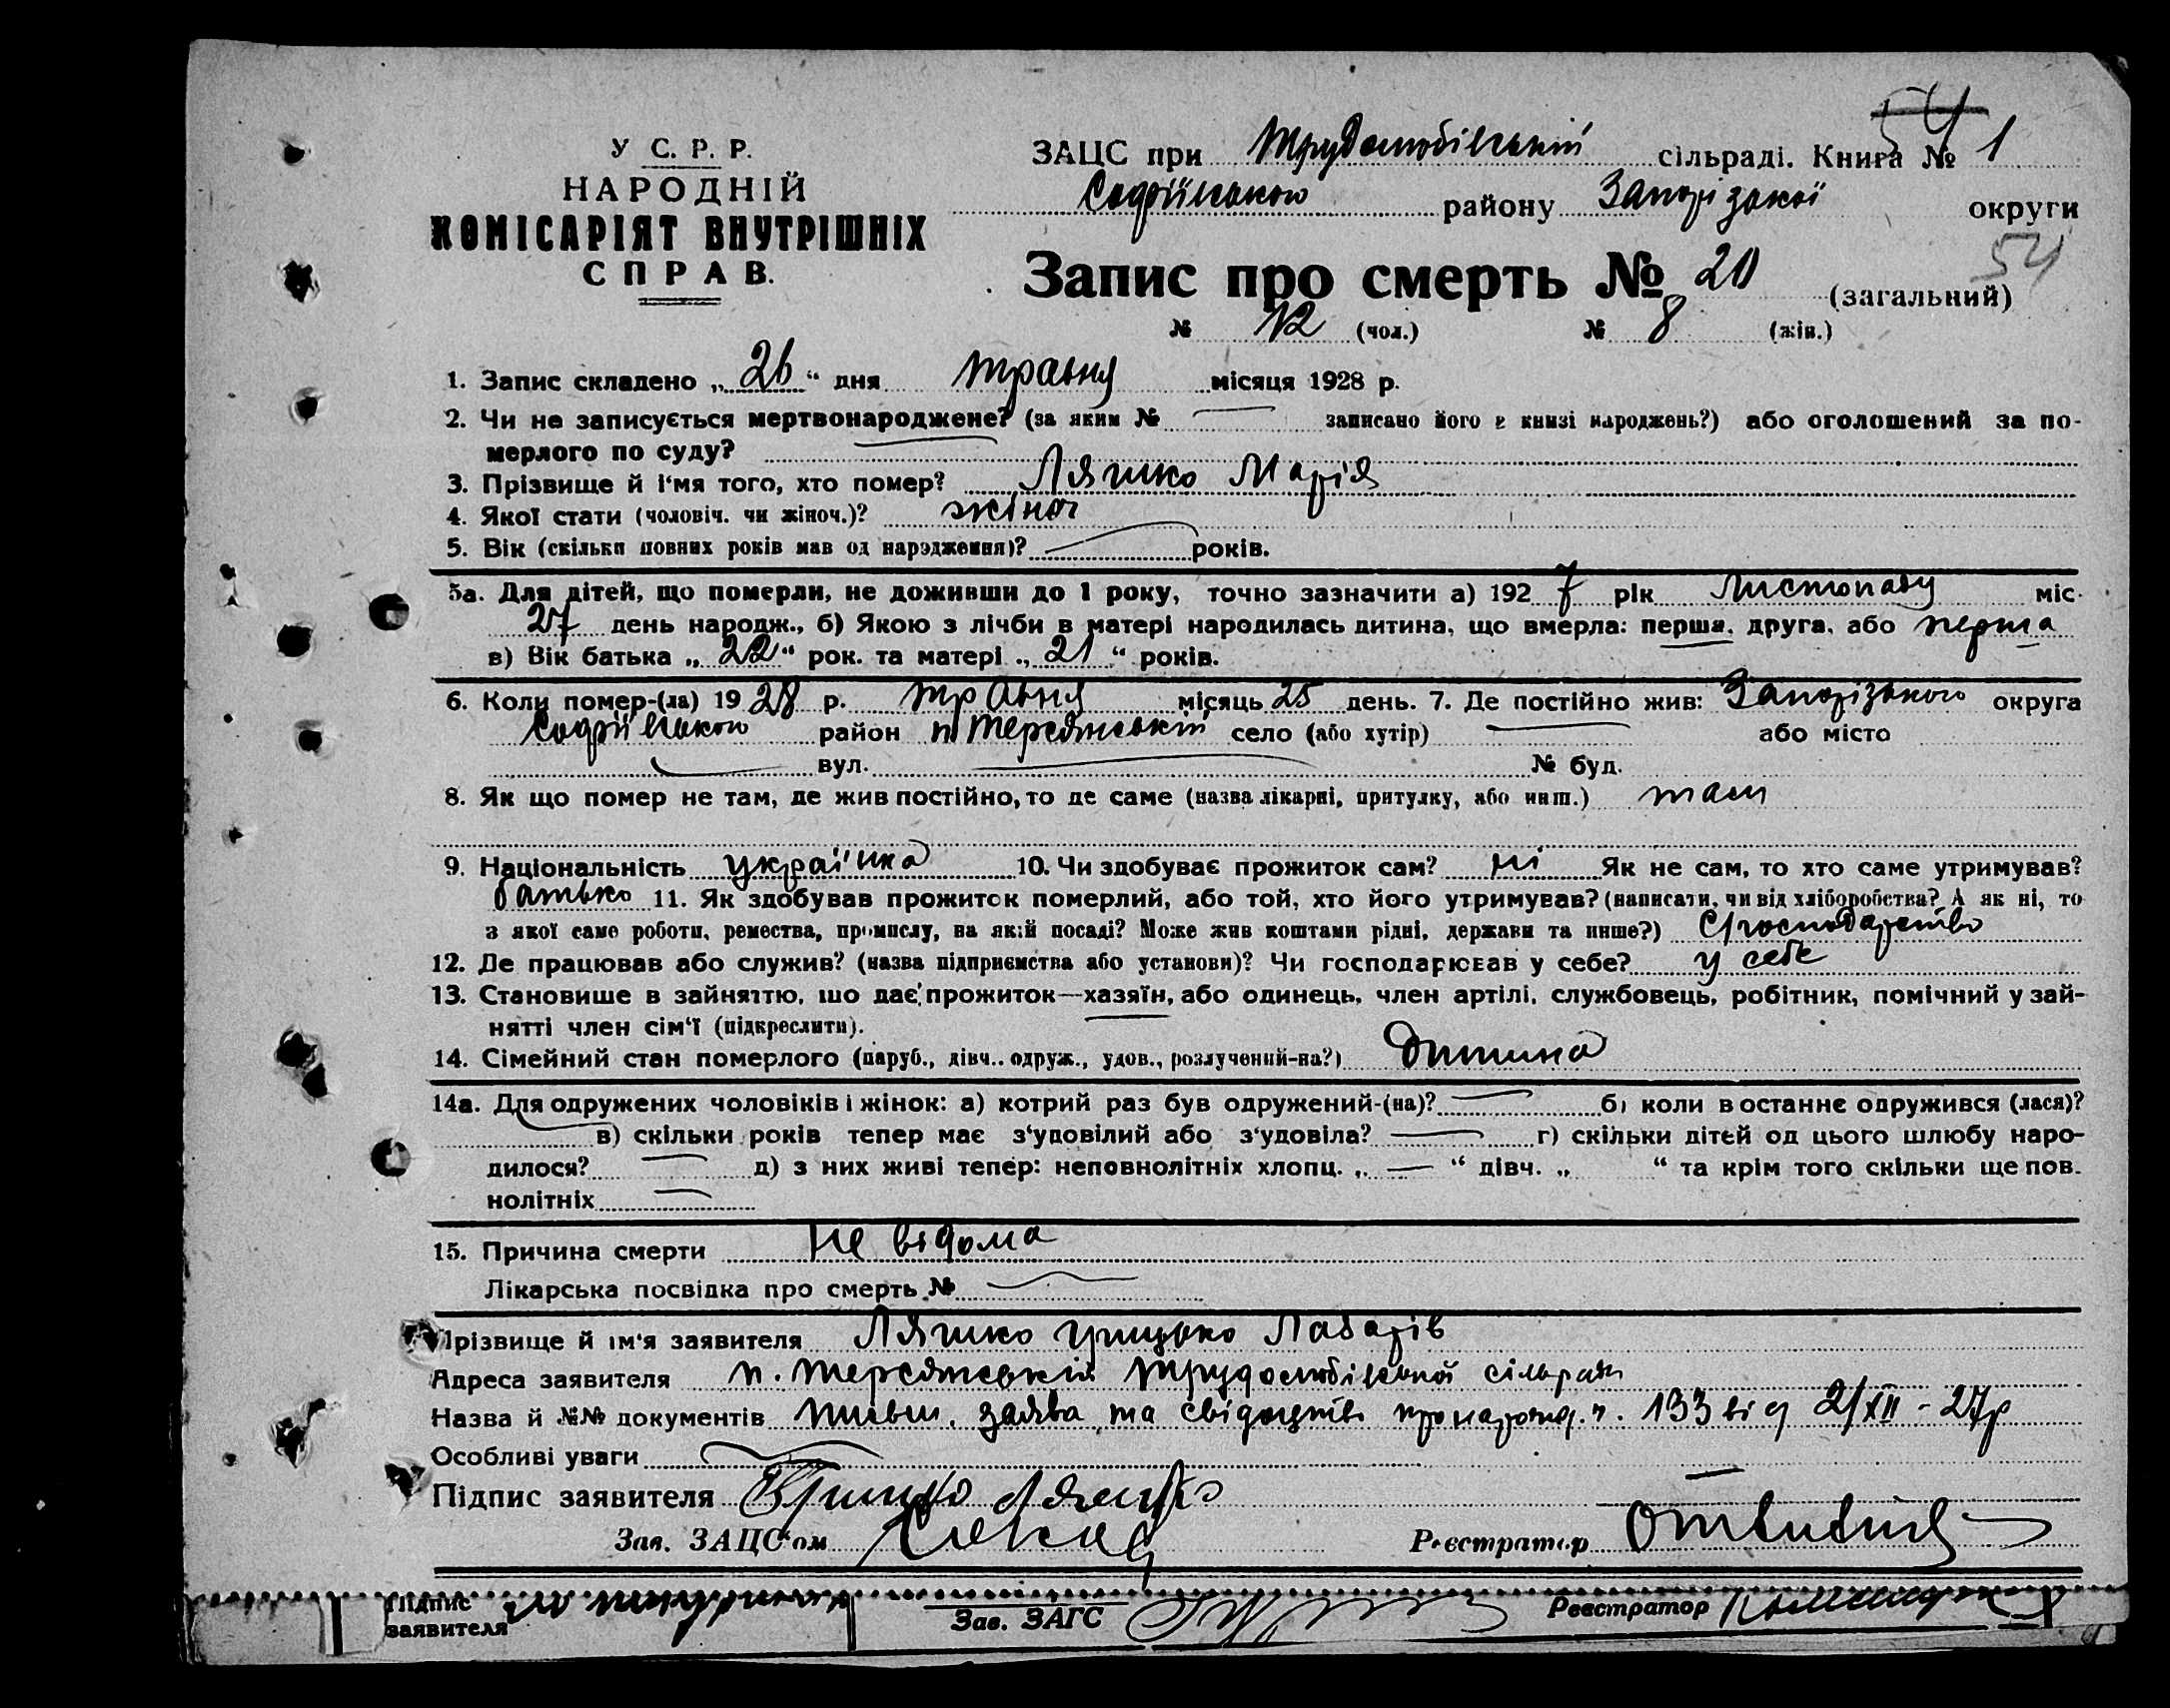 У С. Р. Р.
НАРОДНІЙ
КОМІСАРІЯТ ВНУТРІШНІХ
СПРАВ.
54
ЗАЦС при Трудолюбівській сільраді. Книга № 1
Софіївського району Запорізької округи
54
Запис про смерть № 20 (загальний)
№ 12 (чол.) № 8 (жін.)
1. Запис складено „26“ дня травня місяця 1928 р.
2. Чи не записується мертвонароджене? (за яким № — записано його в книзі народжень?) або оголошений за по-
мерлого по суду? —
3. Прізвище й і‘мя того, хто помер? Ляшко Марія
4. Якої стати (чоловіч. чи жіноч.)? жіноч
5. Вік (скільки повних років мав од народження)? — років.
5а. Для дітей, що померли, не доживши до 1 року, точно зазначити а) 1927 рік Листопаду міс.
27 день народж., б) Якою з лічби в матері народилась дитина, що вмерла: перша, друга, або перша
в) Вік батька „22“ рок. та матері „21“ років.
6. Коли помер-(ла) 1928 р. травня місяць 25 день. 7. Де постійно жив: Запорізького округа
Софіївського район п Терсянський село (або хутір) — або місто
— вул. — № буд.
8. Як що помер не там, де жив постійно, то де саме (назва лікарні, притулку, або инш.) там
9. Національність українка 10. Чи здобуває прожиток сам? ні Як не сам, то хто саме утримував?
батько 11. Як здобував прожиток померлий, або той, хто його утримував? (написати, чи від хліборобства? А як ні, то
з якої саме роботи, ремества, промислу, на якій посаді? Може жив коштами рідні, держави та инше?) С/господарство
12. Де працював або служив? (назва підприємства або установи)? Чи господарював у себе? у себе
13. Становище в зайняттю, що дає прожиток—хазяїн, або одинець, член артілі, службовець, робітник, помічний у зай-
нятті член сім‘ї (підкреслити).
14. Сімейний стан померлого (паруб., дівч.. одруж., удов., розлучений-на?) дитина
14а. Для одружених чоловіків і жінок: а) котрий раз був одружений-(на)? — б) коли в останнє одружився (лася)?
— в) скільки років тепер має з‘удовілий або з‘удовіла? — г) скільки дітей од цього шлюбу наро-
дилося? — д) з них живі тепер: неповнолітніх хлопц. „ — “ дівч. „ “ та крім того скільки ще пов.
нолітніх —
15. Причина смерти Не відома
Лікарська посвідка про смерть № —
Прізвище й ім‘я заявителя Ляшко Грицько Лазарів
Адреса заявителя п. Терсянський Трудолюбівської сільради
Назва й №№ документів письм. заява та свідоцтво про народж. ч. 133 від 2/XII - 27р
Особливі уваги —
Підпис заявителя Грицько Ляшко
Зав. ЗАЦС‘ом Реєстратор
Підпис
заявителя Зав. ЗАГС Реєстратор